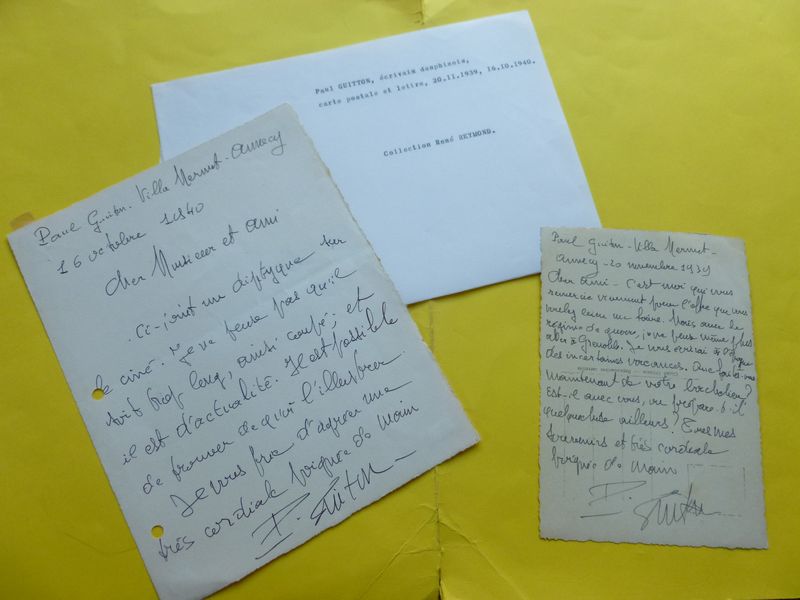 Paul GUITTON, écrivain dauphinois,
carte postale et lettre, 20.11.1939, 16.10.1940.
Collection René REYMOND.
Paul Guiton - Villa Mermet - Annecy
16 octobre 1940
Cher Monsieur et ami
Ci-joint un diptyque sur
le ciné. Je ne pense pas qu'il
soit trop long, ainsi coupé; et
il est d'actualité. Il est possible
de trouver de quoi l'illustrer.
Je vous prie d'agréer une
très cordiale poignée de main
P. Guiton
Paul Guiton - Villa Mermet -
Annecy - 20 novembre 1939
Cher ami - C'est moi qui vous
remercie vraiment pour l'offre que vous
voulez bien me faire. Mais avec le
régime de guerre, je ne peux même plus
aller à Grenoble. Je vous écrirai à
des incertaines vacances. Que faites-vous
maintenant de votre bachelier?
Est-il avec vous, ou prépare-t-il
quelque chose ailleurs? Tous mes
souvenirs et très cordiale
poignée de main
P. Guiton